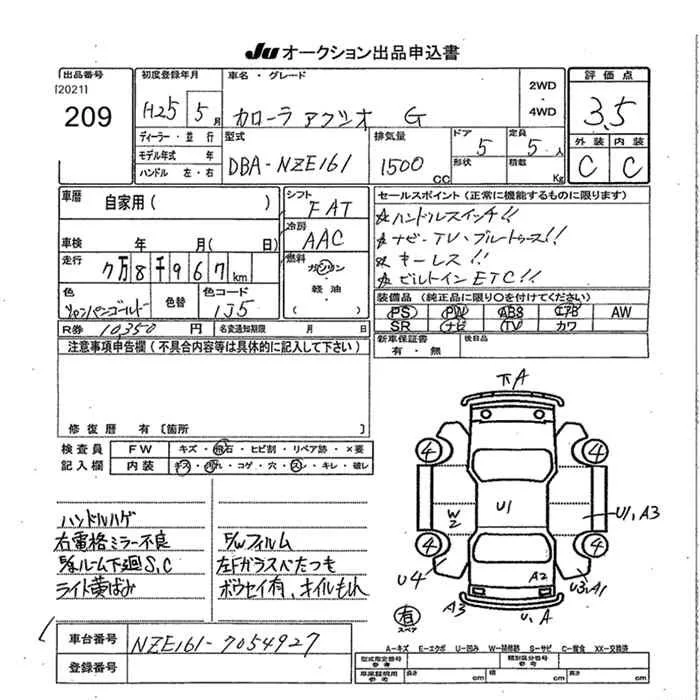 JU オークション出品申込書
出品番号
[2021]
209
初度登録年月
H25 5月
車名・グレード
カローラ アクシオ G
2WD
・
4WD
評価点
3.5
外装 内装
C C
ディーラー・並行
モデル年式 年
ハンドル 左・右
型式
DBA-NZE161
排気量
1500 CC
ドア
5
定員
5人
形状
積載
Kg
車暦
自家用( )
車検 年 月( 日)
走行
7万8千967km
色
シャンパンゴールド
色替
色コード
1J5
R券 10,350 円 名変通知期限 月 日
シフト
FAT
冷房
AAC
燃料
ガソリン
・
軽油
セールスポイント(正常に機能するものに限ります)
☆ハンドルスイッチ!!
☆ナビ・TV・ブルートゥース!!
☆キーレス!!
☆ビルトインETC!!
装備品(純正品に限り○を付けてください)
PS PW ABS エアB AW
SR ナビ TV カワ
新車保証書
有・無
後日品
注意事項申告欄(不具合内容等は具体的に記入して下さい)
修復歴 有〔箇所 〕
検査員
記入欄
FW キズ・飛石・ヒビ割・リペア跡・×要
内装 キズ・汚れ・コゲ・穴・スレ・キレ・破レ
ハンドルハゲ
右電格ミラー不良
ルーム下廻S,C
ライト黄ばみ
フィルム
左Fガラスべたつき
ボウセイ有、オイルもれ
車台番号 NZE161-7054927
登録番号
A
4 4
W2 U1 U1,A3
4 4
U4 A2 U3,A1
A3 U,A
有
スペア
A-キズ E-エクボ U-凹み W-補修跡 S-サビ C-腐食 XX-交換済
型式指定番号
参考
類別区分番号
参考
車庫証明用
参考
長さ cm 幅 cm 高さ cm